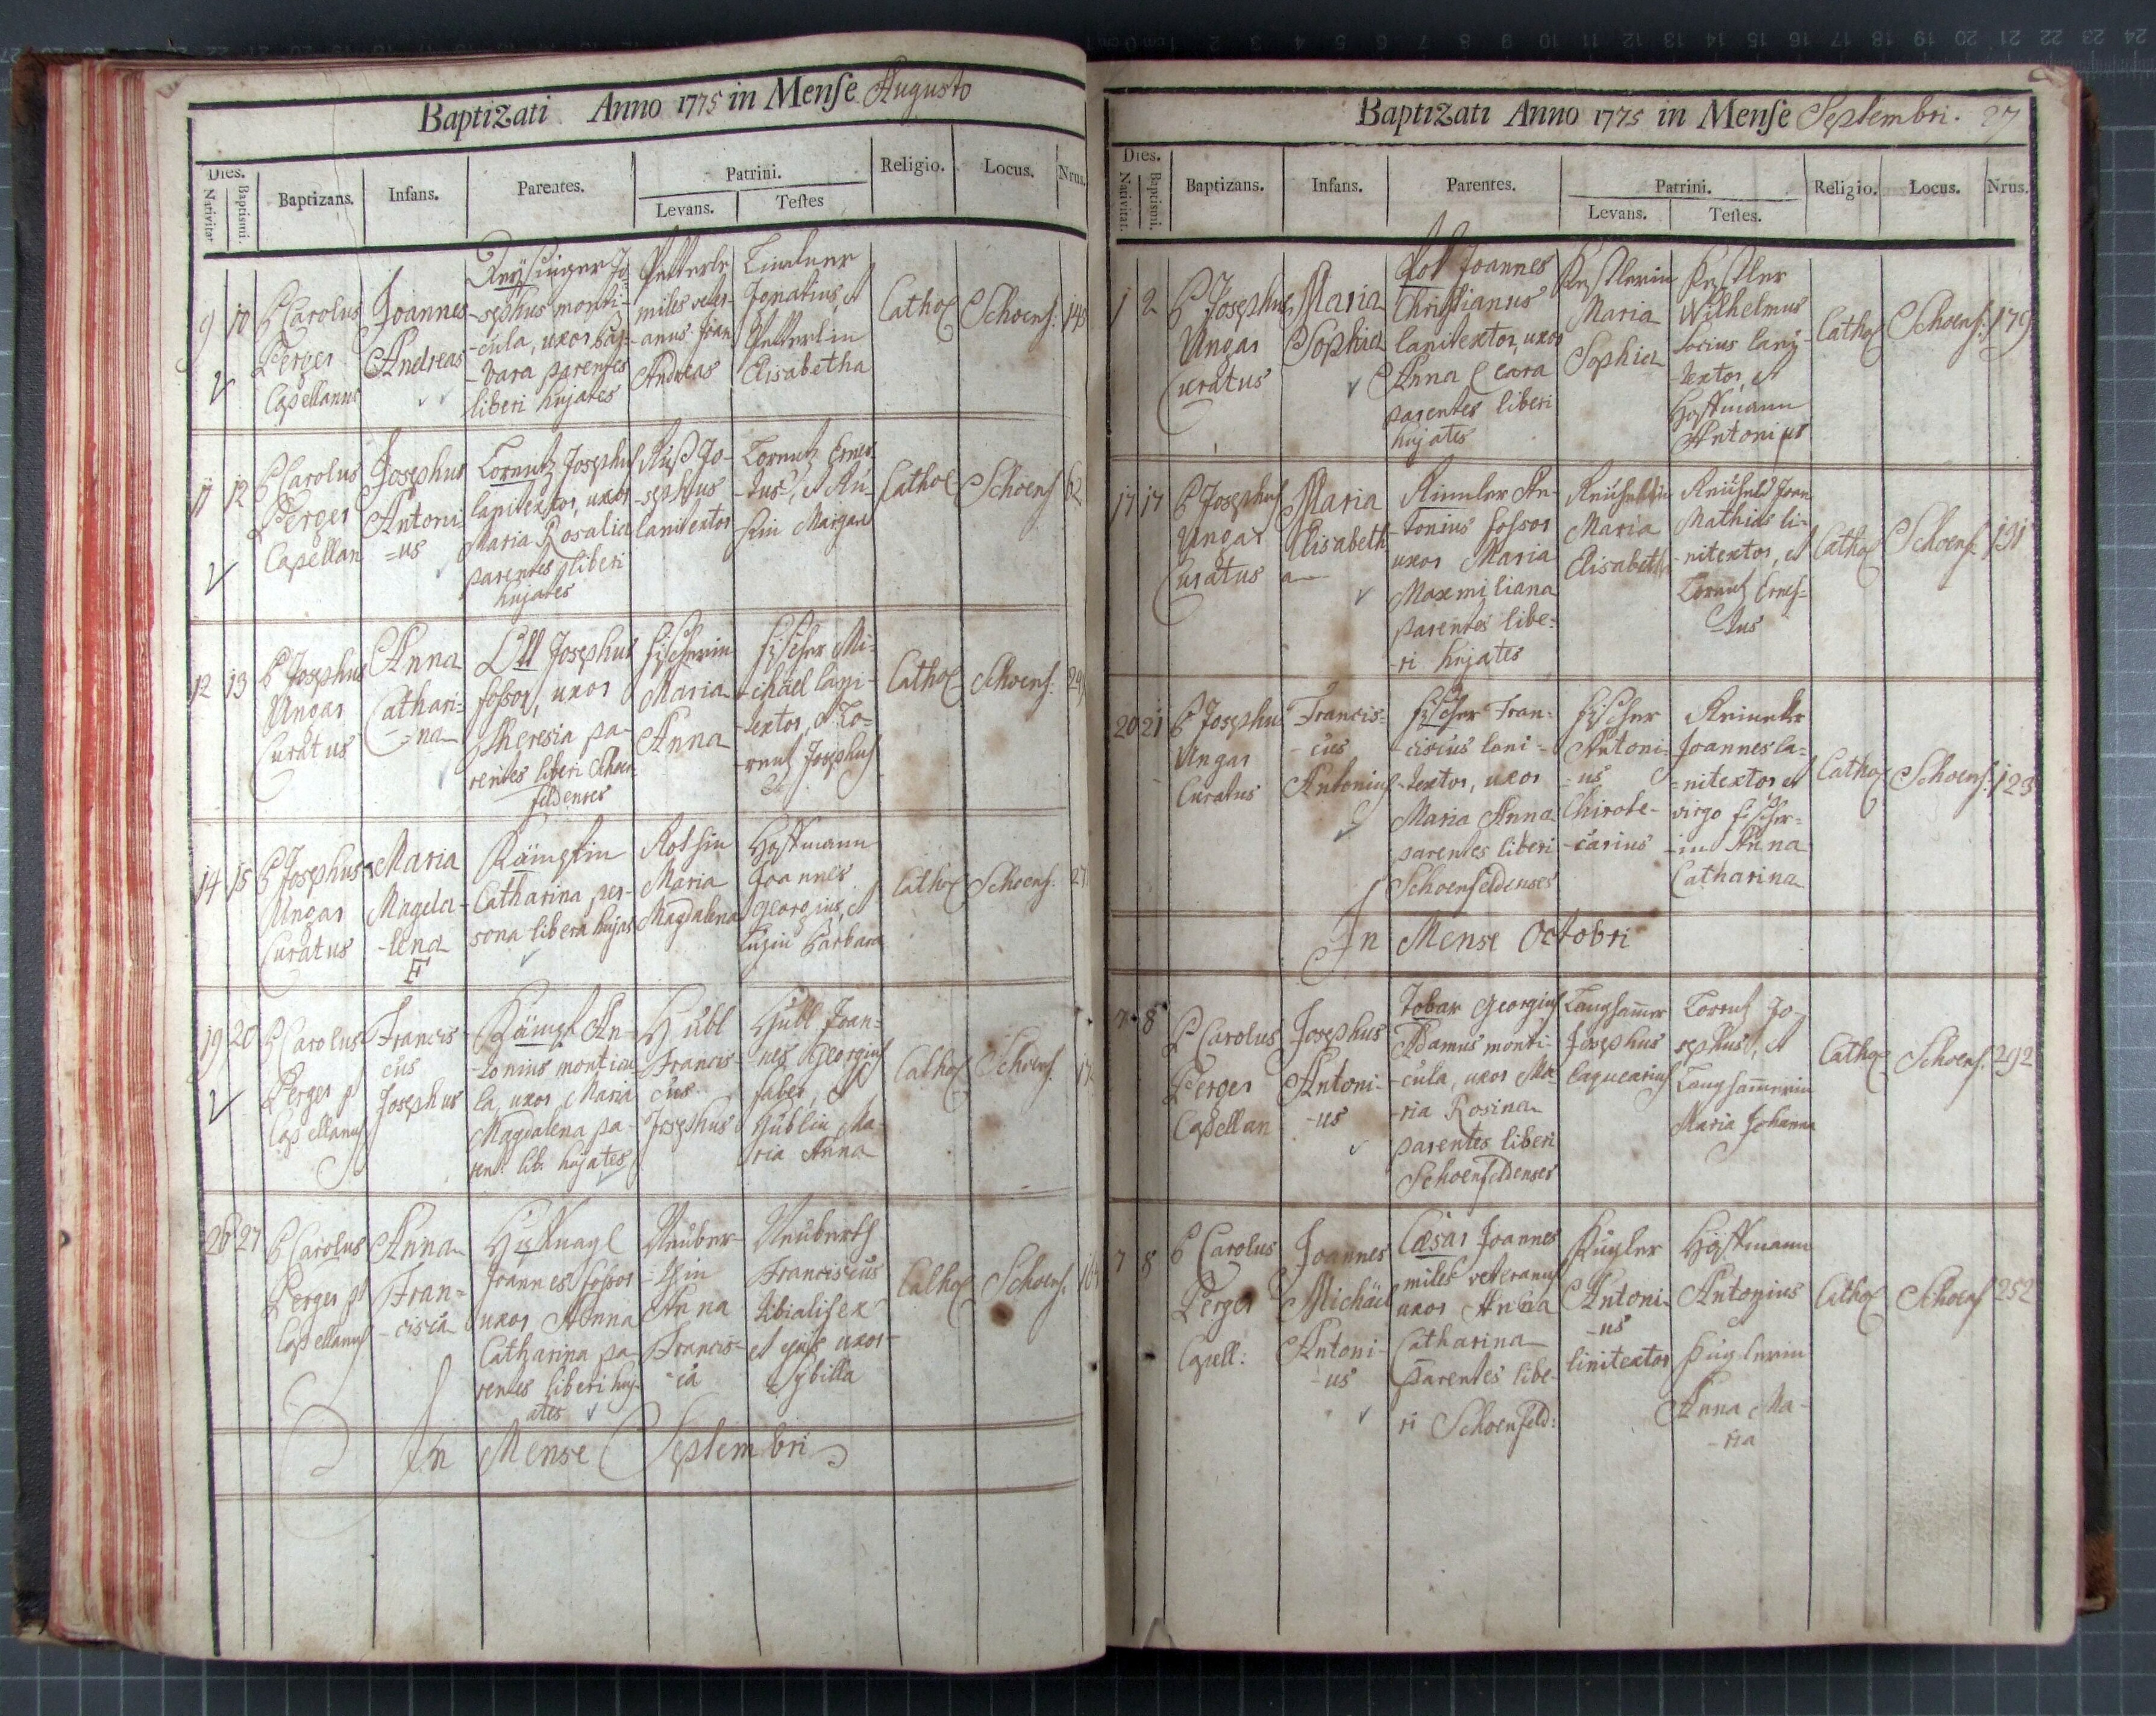 Baptizati Anno 1775 in Mense Augusto
Dies. Nativitat. Baptismi. Baptizans. Infans. Parentes. Patrini. Levans. Testes Religio. Locus. Nrus.
9 10
P Carolus
Perger
Capellanus
Joannes
Andreas
Jo
-sephus monti-
-cula, uxor Bar-
-bara parentes
liberi hujates
miles veter-
-anus Joan
Andreas
Lindner
Ignatius, et
Elisabetha
Cathol
Schoenf.
11 12
P Carolus
Perger
Capellan
Josephus
Antoni
=us
Lorentz Josephus
lanitextor, uxor
Maria Rosalia
parentes liberi
hujates
Jo-
-sephus
lanitextor
Lorentz Ernes
-tus, et
Margare
Cathol
Schoenf
62
12 13
P Josephus
Ungar
Curatus
Anna
Cathari=
=na
Ott Josephus
fossor, uxor
Theresia pa-
rentes liberi Schoen
feldenses
Fischerin
Maria
Anna
Fischer Mi-
-chael lani-
-textor, et Lo-
-rentz Josephus
Cathol
Schoenf.
14 15
P Josephus
Ungar
Curatus
Maria
Magda-
-lena
F
Kämpfin
Catharina per-
sona libera hujas
Maria
Magdalena
Hoffmann
Joannes
Georgius, et
Barbara
Cathol
Schoenf.
19 20
P Carolus
Perger pt
Capellanus
Francis
cus
Josephus
Kämpf An
-tonius monticu
la, uxor Maria
Magdalena pa-
rent: lib. hujates
Hübl
Francis-
cus
Josephus
Hübl Joan=
nes Georgius
faber, et
Hüblin Ma-
ria Anna
Cathol
Schoenf.
26 27
P Carolus
Perger pt
Capellanus
Anna
Fran=
-cisca
Joannes fossor
uxor Anna
Catharina pa-
rentes liberi huj-
ates
Neuber-
-thin
Anna
Francis-
-ca
Neuberth
Franciscus
tibialifex
et ejus uxor
Sybilla
Cathol
Schoenf.
In Mense Septembri
Baptizati Anno 1775 in Mense Septembri. 27
Dies. Nativitat. Baptismi. Baptizans. Infans. Parentes. Patrini. Levans. Testes. Religio. Locus. Nrus.
1 2
P Josephus
Ungar
Curatus
Maria
Sophia
Joannes
Christianus
lanitextor, uxor
Anna Clara
parentes liberi
hujates
Maria
Sophia
Wilhelmus
socius lani-
-textor, et
Hoffmann
Antonius
Cathol
Schoenf.
179
17 17
P Josephus
Ungar
Curatus
Maria
Elisabeth
a
An-
tonius fossor
uxor Maria
Maxmiliana
parentes libe-
-ri hujates
Maria
Elisabetha
Joan
Mathias li-
nitextor, et
Lorentz Ernes-
-tus
Cathol
Schoenf.
191
20 21
P Josephus
Ungar
Curatus
Francis-
-cus
Antonius
Fischer Fran-
-ciscus lani-
-textor, uxor
Maria Anna
parentes liberi
Schoenfeldenses
Fischer
Antoni-
-us
Chirote-
-carius
Joannes la=
=nitextor et
virgo Fischer=
-in Anna
Catharina
Cathol
Schoenf.
123
In Mense Octobri
7 8
P Carolus
Perger
Capellan
Josephus
Antoni-
-us
Georgius
Adamus monti-
-cula, uxor Ma-
-ria Rosina
parentes liberi
Schoenfeldenses
Langhammer
Josephus
laquearius
Lorentz Jo-
sephus, et
Langhammerin
Maria Johanna
Cathol
Schoenf.
292
7 8
P Carolus
Perger
Capell:
Joannes
Michäel
Antoni-
us
Cæsar Joannes
miles veteranus
uxor Anna
Catharina
parentes libe-
ri Schoenfeld:
Kugler
Antoni-
-us
linitextor
Hoffmann
Antonius
Kuglerin
Anna Ma-
-ria
Cathol
Schoenf
252